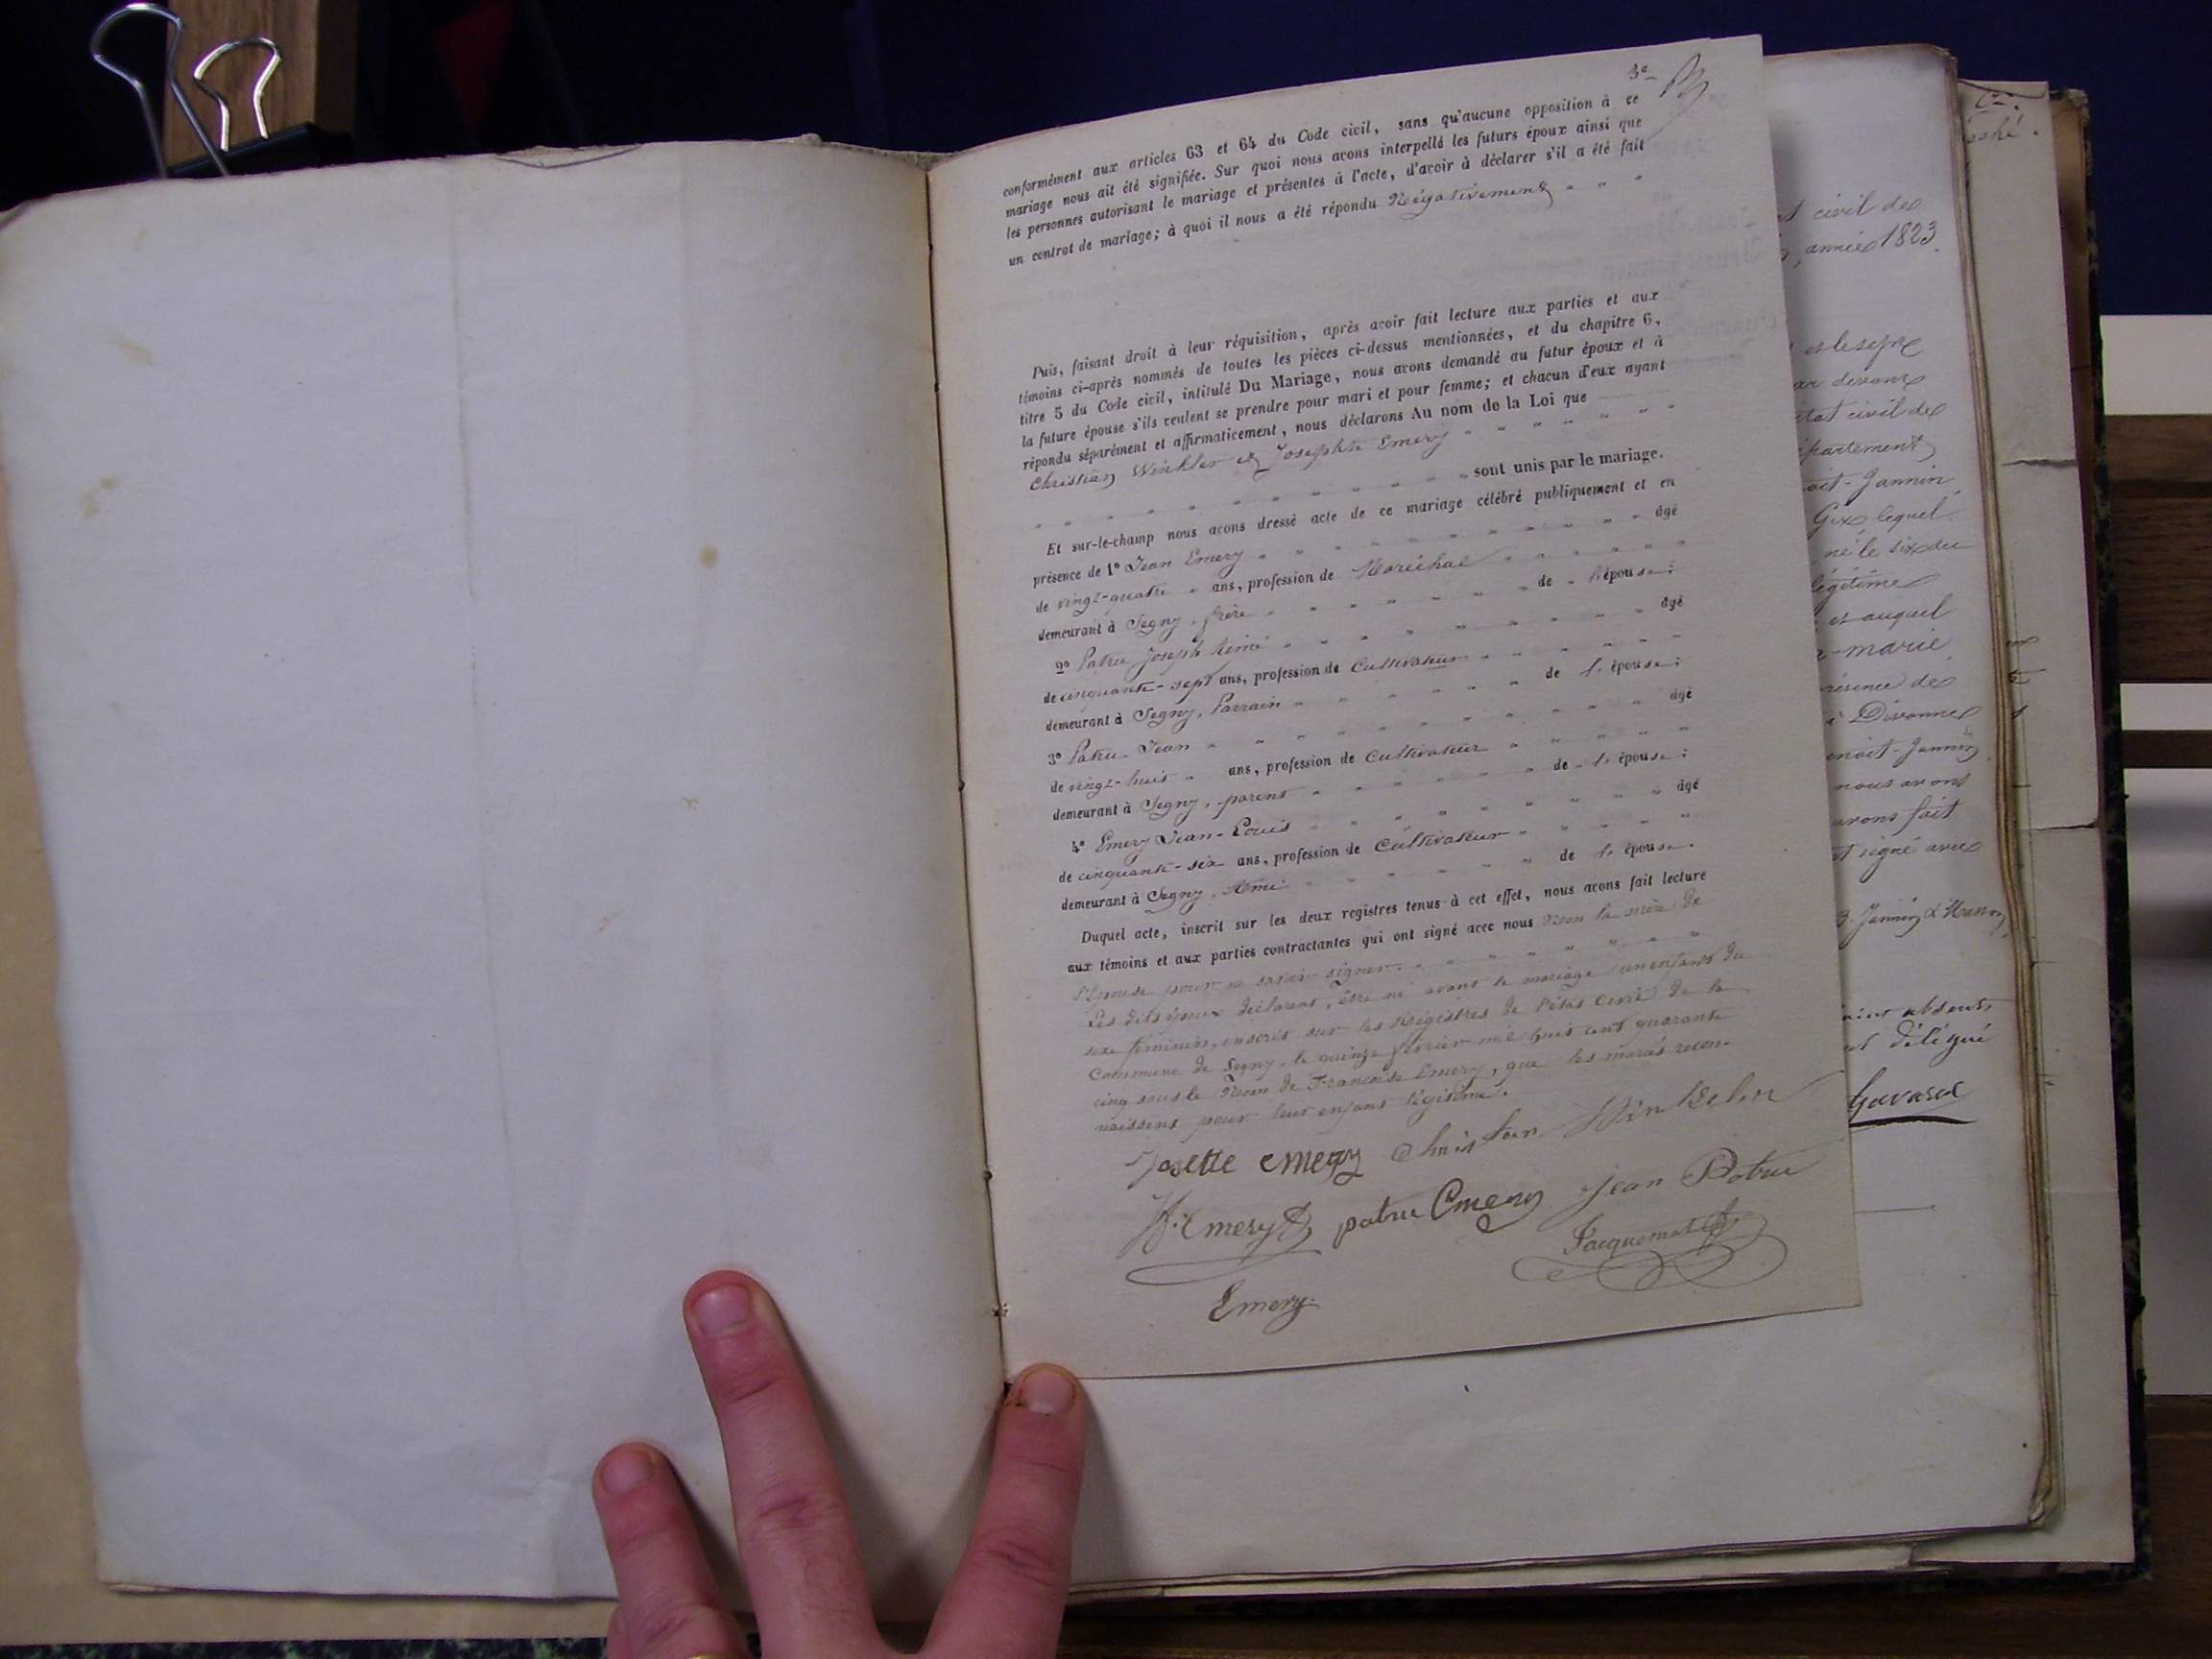 3e
conformément aux articles 63 et 64 du Code civil, sans qu'aucune opposition à ce
mariage nous ait été signifiée. Sur quoi nous avons interpellé les futurs époux ainsi que
les personnes autorisant le mariage et présentes à l'acte, d'avoir à déclarer s'il a été fait
un contrat de mariage; à quoi il nous a été répondu Négativement
Puis, faisant droit à leur réquisition, après avoir fait lecture aux parties et aux
témoins ci-après nommés de toutes les pièces ci-dessus mentionnées, et du chapitre 6,
titre 5 du Code civil, intitulé Du Mariage, nous avons demandé au futur époux et à
la future épouse s'ils veulent se prendre pour mari et pour femme; et chacun d'eux ayant
répondu séparément et affirmativement, nous déclarons Au nom de la Loi que
Christian Winkler et Josephte Emery
sont unis par le mariage.
Et sur-le-champ nous avons dressé acte de ce mariage célébré publiquement et en
présence de 1º Jean Emery âgé
de vingt-quatre ans, profession de Maréchal
demeurant à Segny, frère de l'épouse;
2º Patru Joseph Aimé âgé
de cinquante-sept ans, profession de Cultivateur
demeurant à Segny, Parrain de l'épouse;
3º Patru Jean âgé
de vingt-huit ans, profession de Cultivateur
demeurant à Segny, parent de l'épouse;
4º Emery Jean-Louis âgé
de cinquante-six ans, profession de Cultivateur
demeurant à Segny, Ami de l'épouse.
Duquel acte, inscrit sur les deux registres tenus à cet effet, nous avons fait lecture
aux témoins et aux parties contractantes qui ont signé avec nous Non la mère de
l'épouse pour ne savoir signer.
Les dits époux déclarent, être né avant le mariage un enfant du
sexe féminin, inscrit sur les Régistres de l'état Civil de la
Commune de Segny, le quinze février mil huit cent quarante
cinq sous le Nom de Françoise Emery, que les mariés recon-
naissent pour leur enfant légitime.
Josette emery Christian Winkeler
Emery patru Emery Jean Patru
Jacquemet
Emery
civil de
année 1823
par devant
état civil de
département
Jannin
Gex lequel
né le six du
légitime
et auquel
marie
présence de
à Divonne
enoit-Jannin
nous avons
avons fait
et signé avec
absent
délégué
Gavard